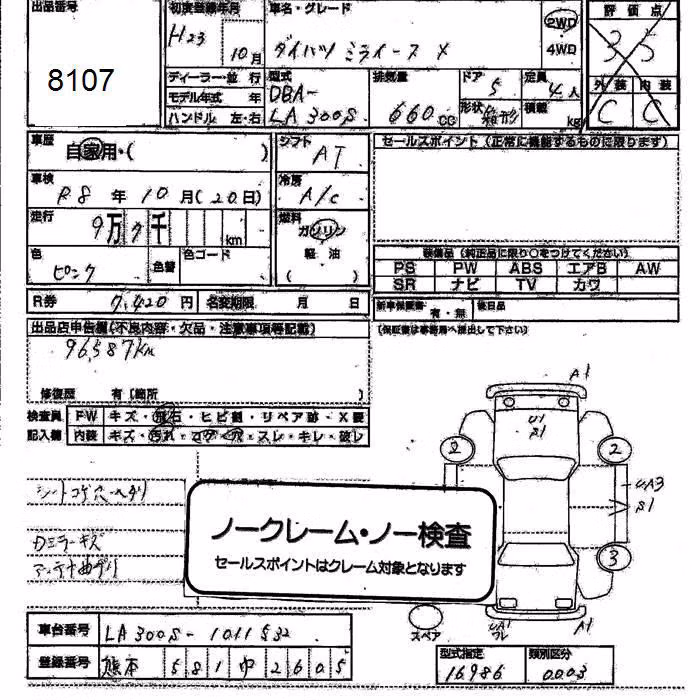 出品番号
8107
初度登録年月
H23
10月
車名・グレード
ダイハツ ミライース X
2WD
・
4WD
評価点
3.5
外装 内装
C C
ディーラー・並行
モデル年式 年
ハンドル 左・右
型式
DBA-
LA300S
排気量
660cc
ドア
5
形状 箱形
定員
4人
積載
kg
車歴
自家用・( )
シフト
AT
セールスポイント(正常に機能するものに限ります)
車検
R8年10月(20日)
冷房
A/C
走行
9万7千
km
燃料
ガソリン
軽油
( )
色
ピンク
色替
色コード
装備品(純正品に限り○をつけてください)
PS PW ABS エアB AW
SR ナビ TV カワ
R券 7,420円
名変期限 月 日
新車保証書
有・無
後日品
(保証書は事務局へ提出して下さい)
出品店申告欄(不良内容・欠品・注意事項等記載)
96,587km
修復歴 有(箇所 )
検査員
記入欄
FW キズ・飛石・ヒビ割・リペア跡・X要
内装 キズ・汚れ・コゲ・穴・スレ・キレ・破レ
シートコゲ穴ヘタリ
Dミラーキズ
アンテナ曲ガリ
ノークレーム・ノー検査
セールスポイントはクレーム対象となります
A1
U1
S1
2
2
UA3
S1
3
スペア
UA1
フレ
A1
車台番号 LA300S-1011532
登録番号 熊本 581 ゆ 2605
型式指定
16986
類別区分
0003